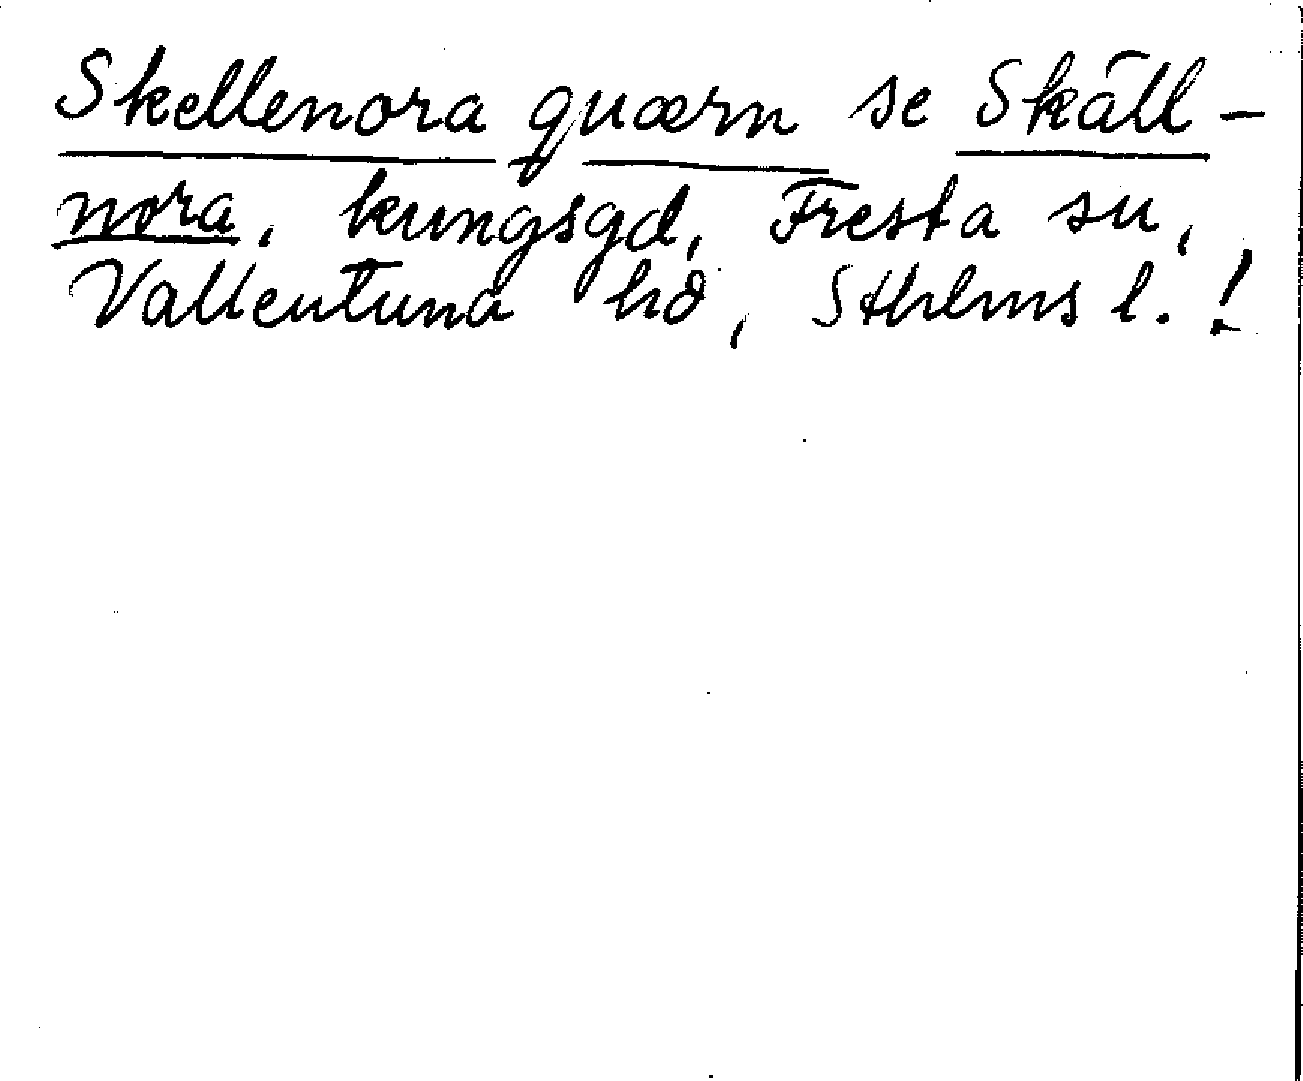 Skellenora quærn se Skäll-
nora, kungsgd, Fresta sn,
Vallentuna hd, Sthlms l.!